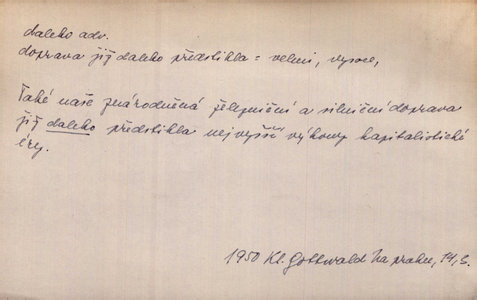 daleko adv.
doprava již daleko předstihla = velmi, vysoce,
Také naše znárodněná železniční a silniční doprava
již daleko předstihla nejvyšší výkony kapitalistické
éry.
1950 Kl. Gottwald Na prahu, 14, 3.